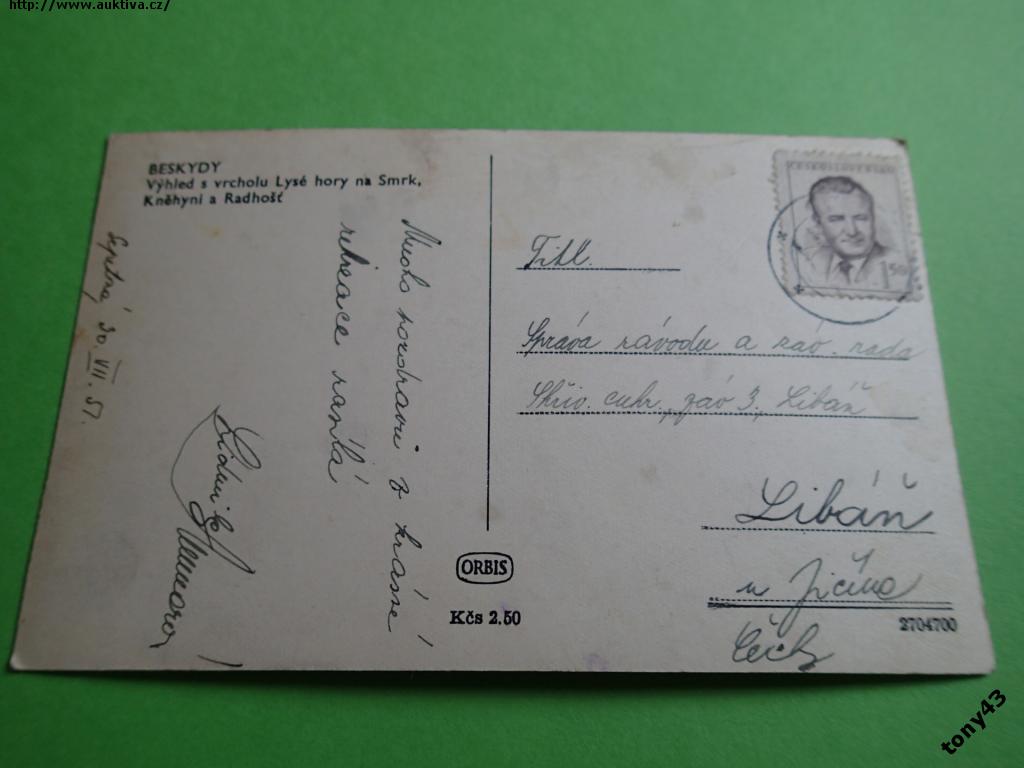 http://www.auktiva.cz/
BESKYDY
Výhled s vrcholu Lysé hory na Smrk,
Kněhyni a Radhošť
30. VII. 51.
Mnoho pozdravů z krásné
rekreace zasílá
ČESKOSLOVENSKO
1.50
Titl.
Správa závodu a záv. rada
cukr., záv 3, Libáň
Libáň
u Jičína
Čechy
ORBIS
Kčs 2.50
2704700
tony43